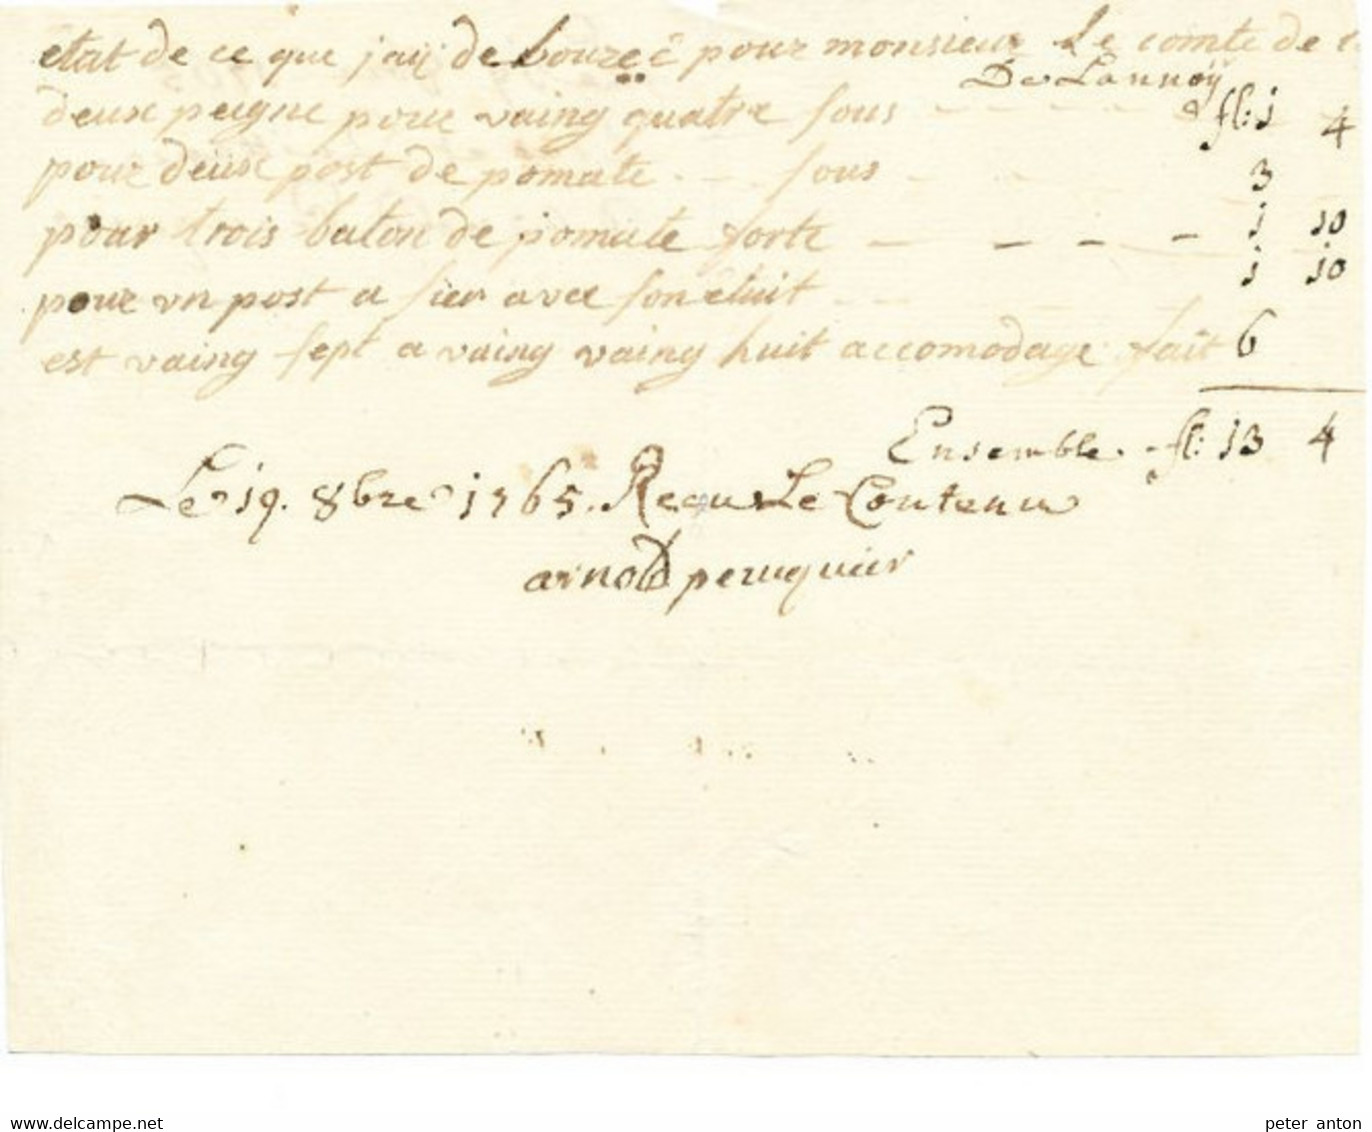 etat de ce que jaÿ de bouzeé pour monsieur Le comte de
De Lannoÿ
deux peigne pour vaing quatre sous fl: 1 4
pour deux post de pomate sous 3
pour trois baton de pomate forte 1 10
pour vn post a sier avec son eluit 1 10
est vaing sept a vaing vaing huit accomodage fait 6
Ensemble fl: 13 4
Le 19. 8bre 1765. Recu Le Contenu
arnold peruquier
peter anton